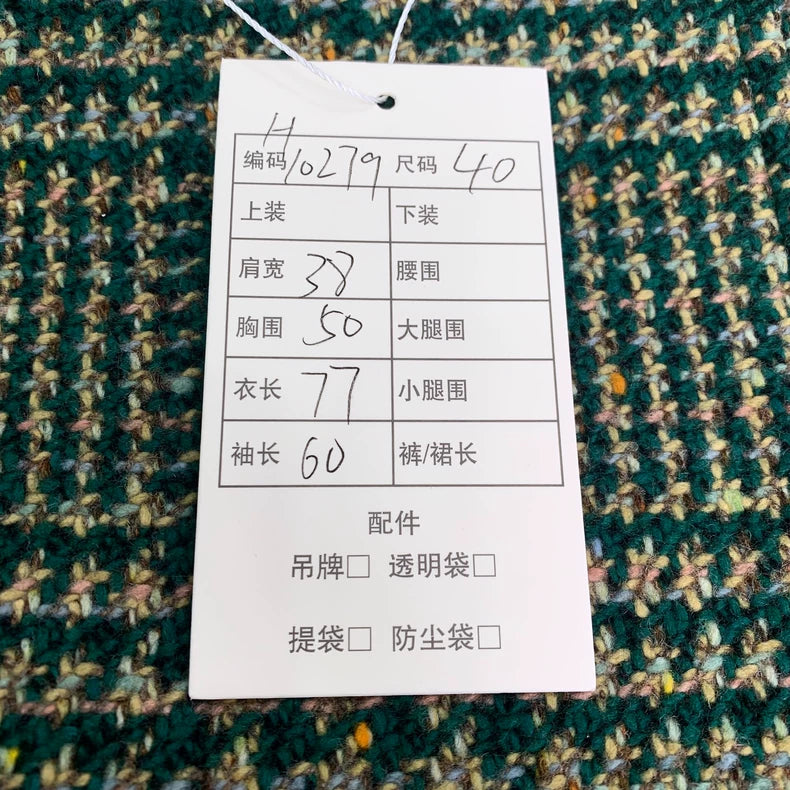 H
编码 10279 尺码 40
上装 下装
肩宽 38 腰围
胸围 50 大腿围
衣长 77 小腿围
袖长 60 裤/裙长
配件
吊牌□ 透明袋□
提袋□ 防尘袋□